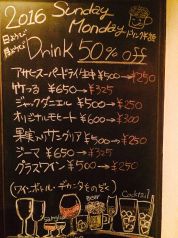 2016 Sunday
Monday ドリンク半額
Drink 50% off
アサヒスーパードライ生中 ¥500→¥250
竹つる ¥650→¥325
ジャックダニエル ¥500→¥250
オリジナルモヒート ¥600→¥300
果実いりサングリア¥500→¥250
ジーマ ¥650→¥325
グラスワイン ¥500→¥250
(ワインボトル・デキャンタをのぞく)
Cocktail
Beer